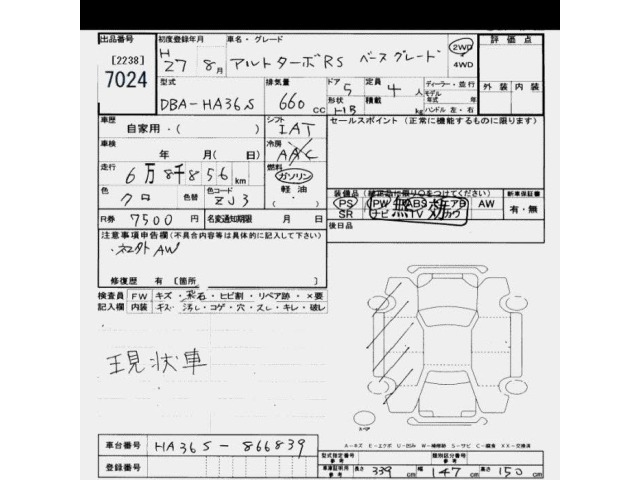 出品番号
[2238]
7024
初度登録年月
H 27 8月
車名・グレード
アルトターボRS ベースグレード
2WD
4WD
評価点
外装 内装
型式
DBA-HA36S
排気量
660 cc
ドア 5
形状 HB
定員 4人
積載 kg
ディーラー・並行
モデル年式 年
ハンドル 左・右
車歴
自家用・( )
車検
年 月(日)
走行
6万8千856km
色 クロ
色替
色コード ZJ3
シフト
IAT
冷房
AAC
燃料
ガソリン
軽油
セールスポイント (正常に機能するものに限ります)
R券 7500円
名変通知期限 月 日
PS PW ABS エアB AW
SR ナビ TV カワ
新車保証書
有・無
後日品
注意事項申告欄(不具合内容等は具体的に記入して下さい)
社外AW
修復歴 有 [箇所 ]
検査員 FW キズ・飛石・ヒビ割・リペア跡・×要
記入欄 内装 キズ・汚レ・コゲ・穴・スレ・キレ・破レ
現状車
スペア
車台番号 HA36S-866839
登録番号
A-キズ E-エクボ U-凹み W-補修跡 S-サビ C-腐食 XX-交換済
型式指定番号 参考
類別区分番号 参考
車庫証明用 参考 長さ 339cm 幅 147cm 高さ 150cm